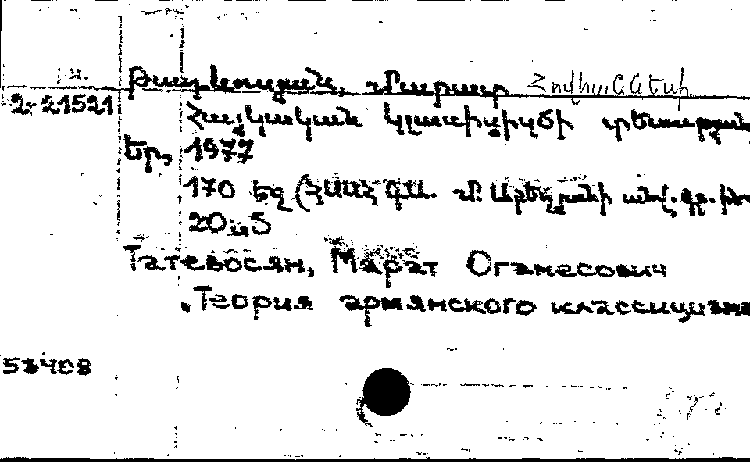 Թադևոսյան, Մարատ Հովհաննեսի
2-21521
Հայկական կլասիցիզմի տեսության
Եր., 1977
170 եջ (ՀՍՍՀ ԳԱ. Մ. Աբեղյանի անվ. գր.
20սմ5
Татевосян, Марат Оганесович
Теория армянского классицизма
53408